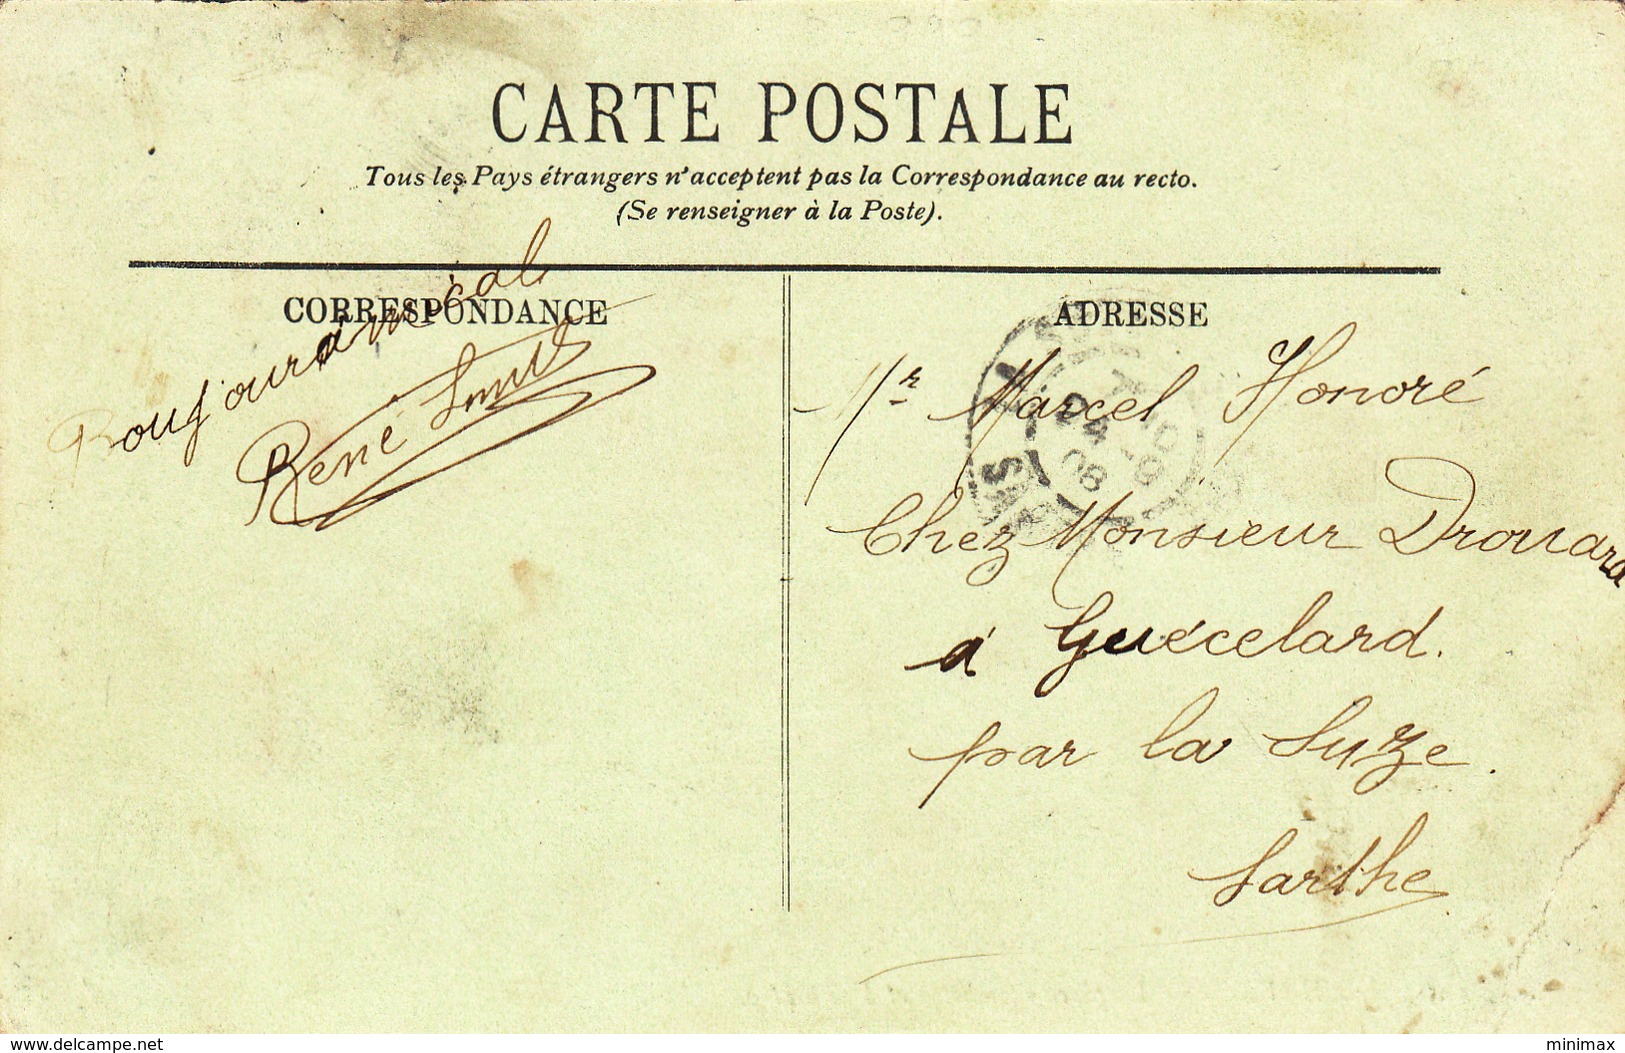 CARTE POSTALE
Tous les Pays étrangers n'acceptent pas la Correspondance au recto.
(Se renseigner à la Poste).
CORRESPONDANCE
amical
René
ADRESSE
Mr Marcel Honoré
Chez Monsieur Drouard
à Guécelard.
par la Suze.
Sarthe
www.delcampe.net
minimax